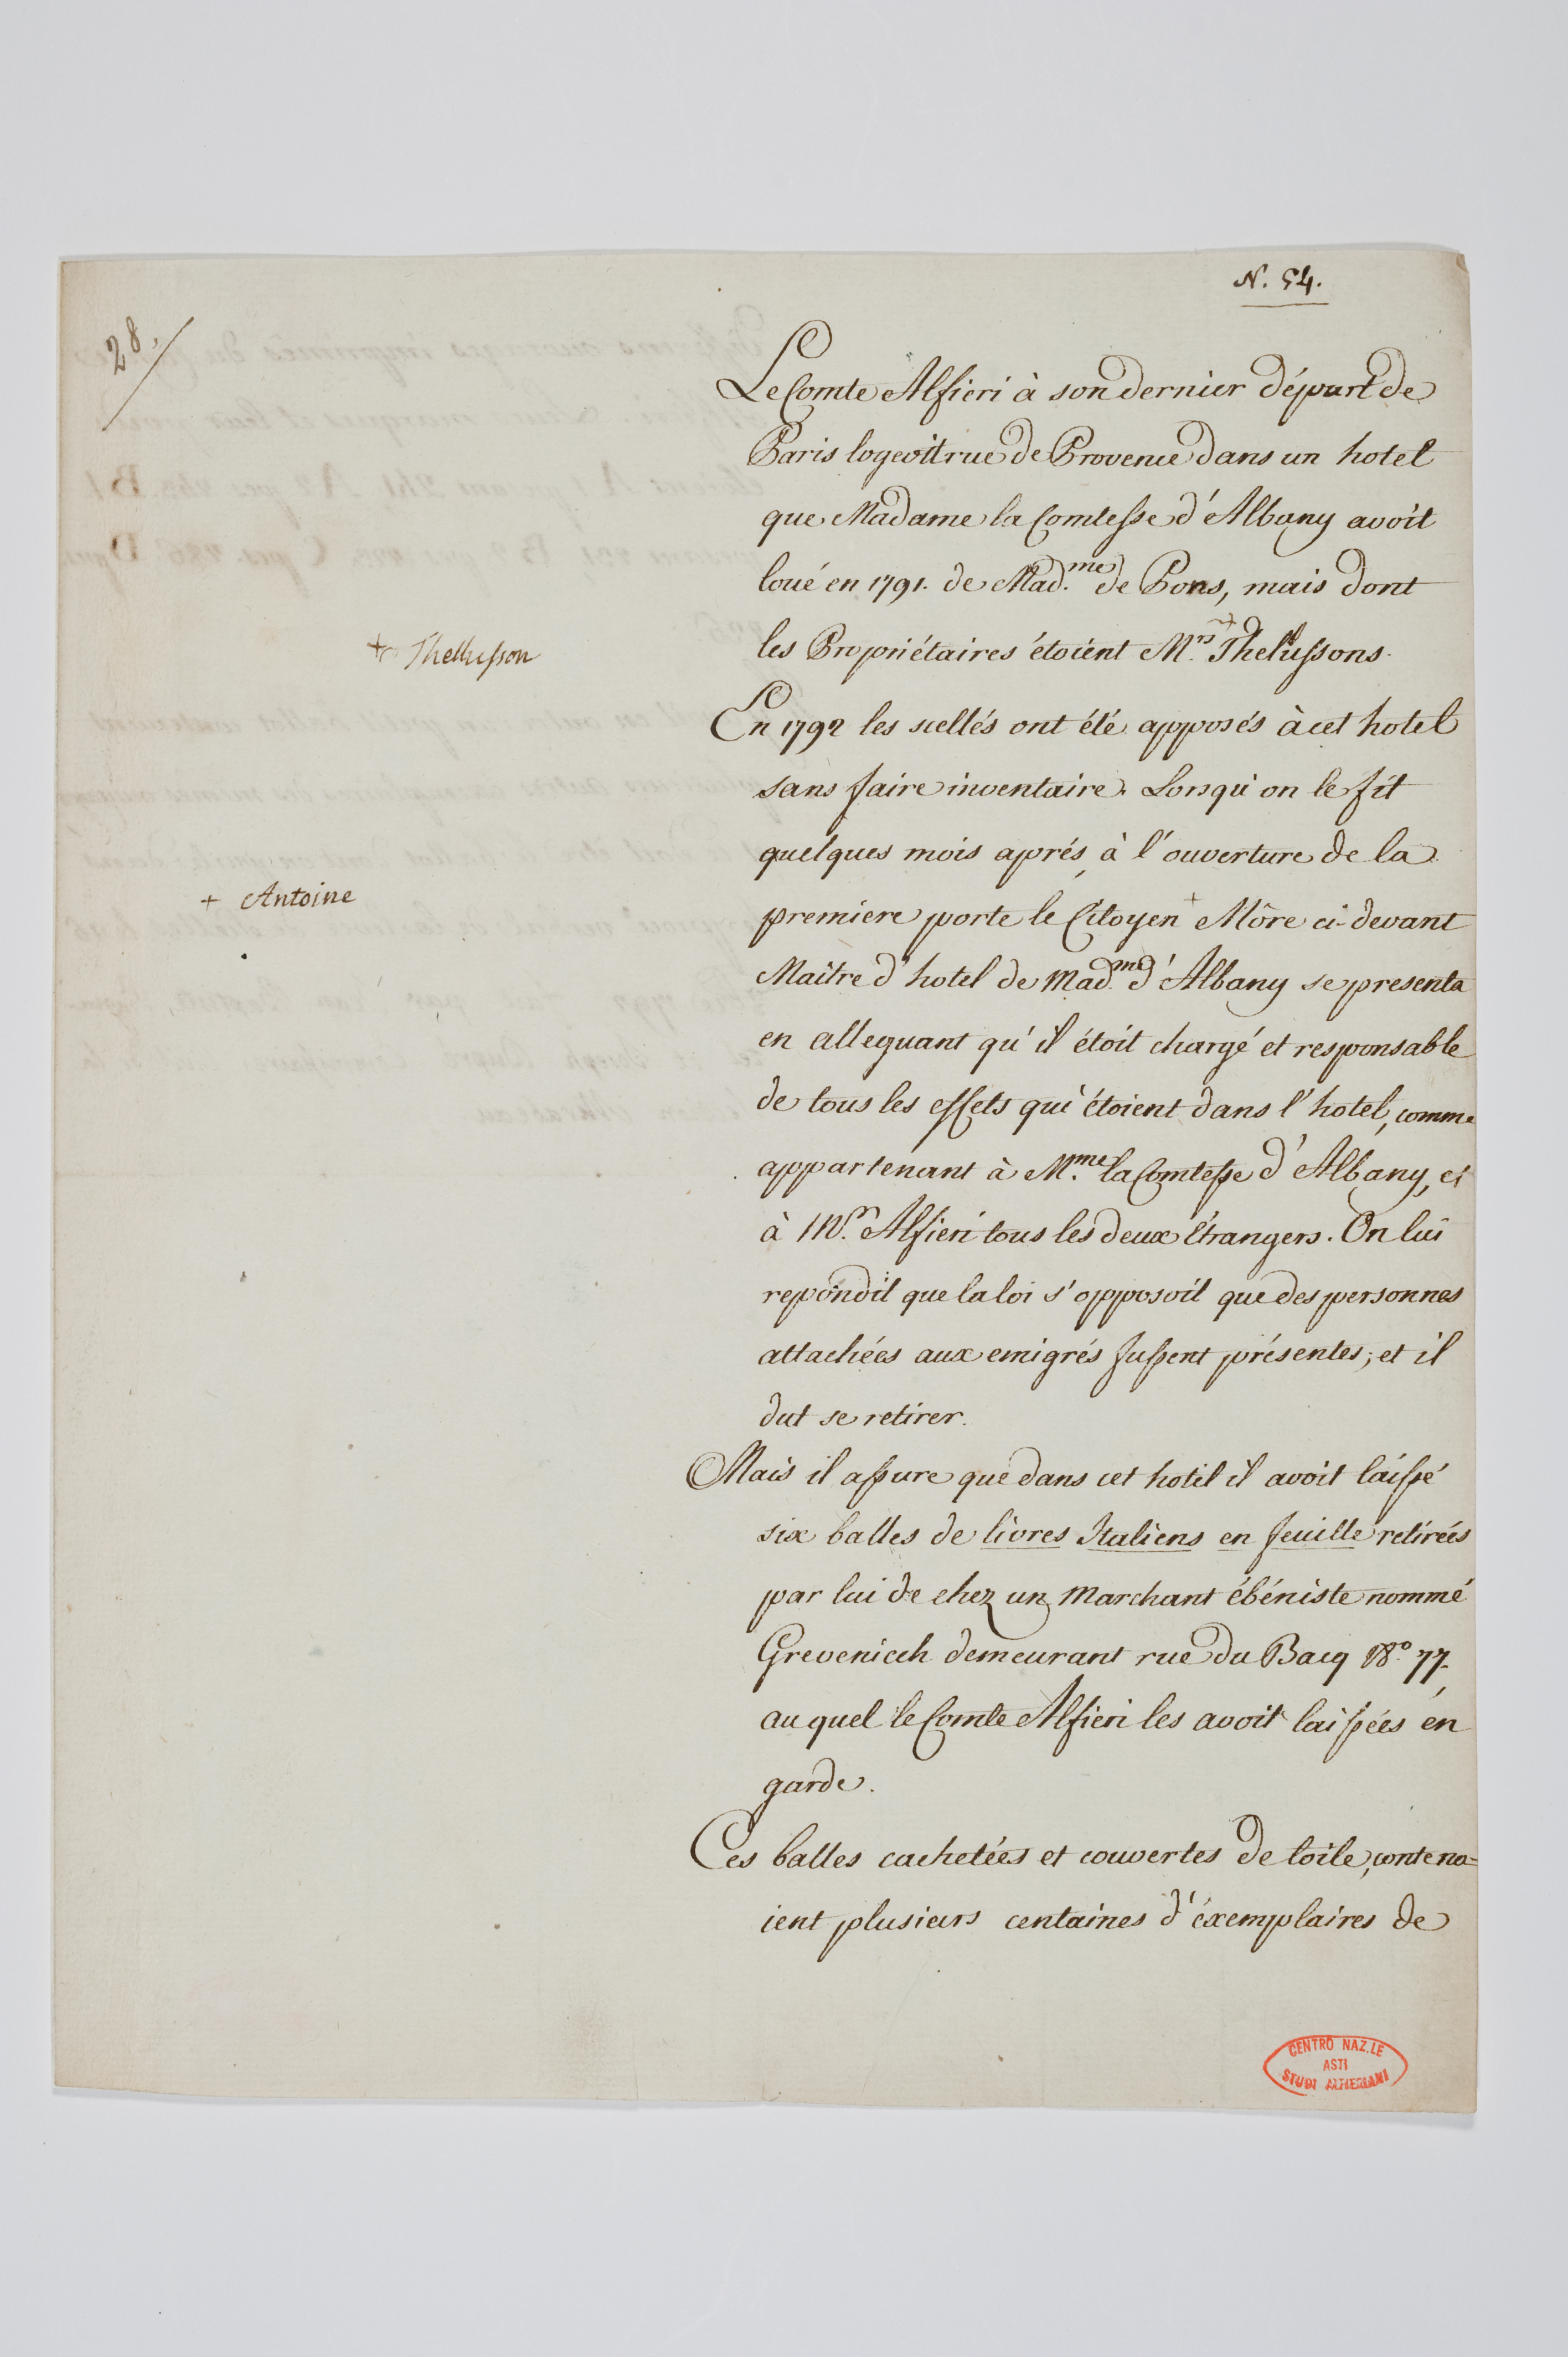 N. 54.
28.
Le Comte Alfieri à son dernier départ de
Paris logeoit rue de Provence dans un hotel
que Madame la Comtesse d'Albany avoit
loué en 1791. de Mad.me de Pons, mais dont
les Propriétaires étoient M.rs + Thelussons.
+ Thellusson
En 1792 les scellés ont été apposés à cet hotel
sans faire inventaire. Lorsqu'on le fit
quelques mois aprés, à l'ouverture de la
premiere porte le Citoyen + Môre ci-devant
+ Antoine
Maitre d'hotel de Mad.me d'Albany se presenta
en alleguant qu'il étoit chargé et responsable
de tous les effets qui étoient dans l'hotel, comme
appartenant à M.me la Comtesse d'Albany, et
à M.r Alfieri tous les deux étrangers. On lui
repondit que la loi s'opposoit que des personnes
attachées aux emigrés fussent présentes; et il
dut se retirer.
Mais il assure que dans cet hotel il avoit laissé
six balles de livres Italiens en feuille retirées
par lui de chez un Marchant ébéniste nommé
Grevenich demeurant rue du Bacq N.o 77,
au quel le Comte Alfieri les avoit laissées en
garde.
Ces balles cachetées et couvertes de toile, contena=
ient plusieurs centaines d'éxemplaires de
CENTRO NAZ.LE
ASTI
STUDI ALFIERIANI